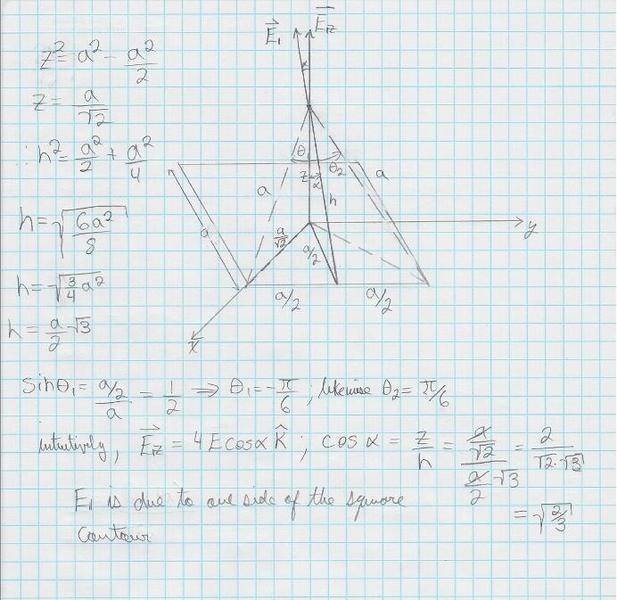 z² = a² - a²/2
z = a/√2
∴ h² = a²/2 + a²/4
h = √(6a²/8)
h = √(3/4 a²)
h = a/2 √3
E⃗₁
E⃗_iz
θ₁
θ₂
z
α
h
a
a
a
a/√2
a/2
y
a/2
a/2
x
sinθ₁ = (a/2)/a = 1/2 ⇒ θ₁ = -π/6 ; likewise θ₂ = π/6
intuitively, E⃗_iz = 4Ecosα k̂ ; cos α = z/h = (a/√2)/(a/2 √3) = 2/(√2·√3)
E₁ is due to one side of the square
= √(2/3)
contour